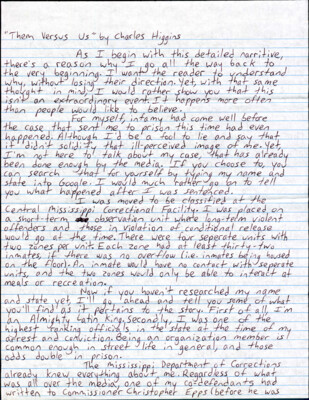 "Them Versus Us" by Charles Higgins
As I begin with this detailed narritive,
there's a reason why I go all the way back to
the very beginning. I want the reader to understand
why, without losing their direction. Yet, with that same
thought in mind I would rather show you that this
isn't an extraordinary event. It happens more often
than people would like to believe.
For myself, infamy had come well before
the case that sent me to prison this time had even
happened. Although I'd be a fool to lie and say that
it didn't solidify that ill-perceived image of me. Yet,
I'm not here to talk about my case, that has already
been done enough by the media. If you choose to, you
can search that for yourself by typing my name and
state into Google. I would much rather go on to tell
you what happened after I was sentenced.
I was moved to be classified at the
Central Mississippi Correctional Facility. I was placed on
a short-term observation unit where long-term violent
offenders and those in violation of conditional release
would go at the time. There were four seperate units with
two zones per unit. Each zone had at least thirty-two
inmates if there was no overflow (i.e. inmates being housed
on the floor). An inmate would have no contact with separate
units, and the two zones would only be able to interact at
meals or recreation.
Now if you haven't researched my name
and state yet, I'll go ahead and tell you some of what
you'll find as it pertains to the story. First of all, I'm
an Almighty Latin King. Secondly, I was one of the
highest ranking officials in the state at the time of my
arrest and conviction. Being an organization member is
common enough in street life in general, and those
odds double in prison.
The Mississippi Department of Corrections
already knew everything about me. Regardless of what
was all over the media, one of my co-defendants had
written to Commissioner Christopher Epps (before he was